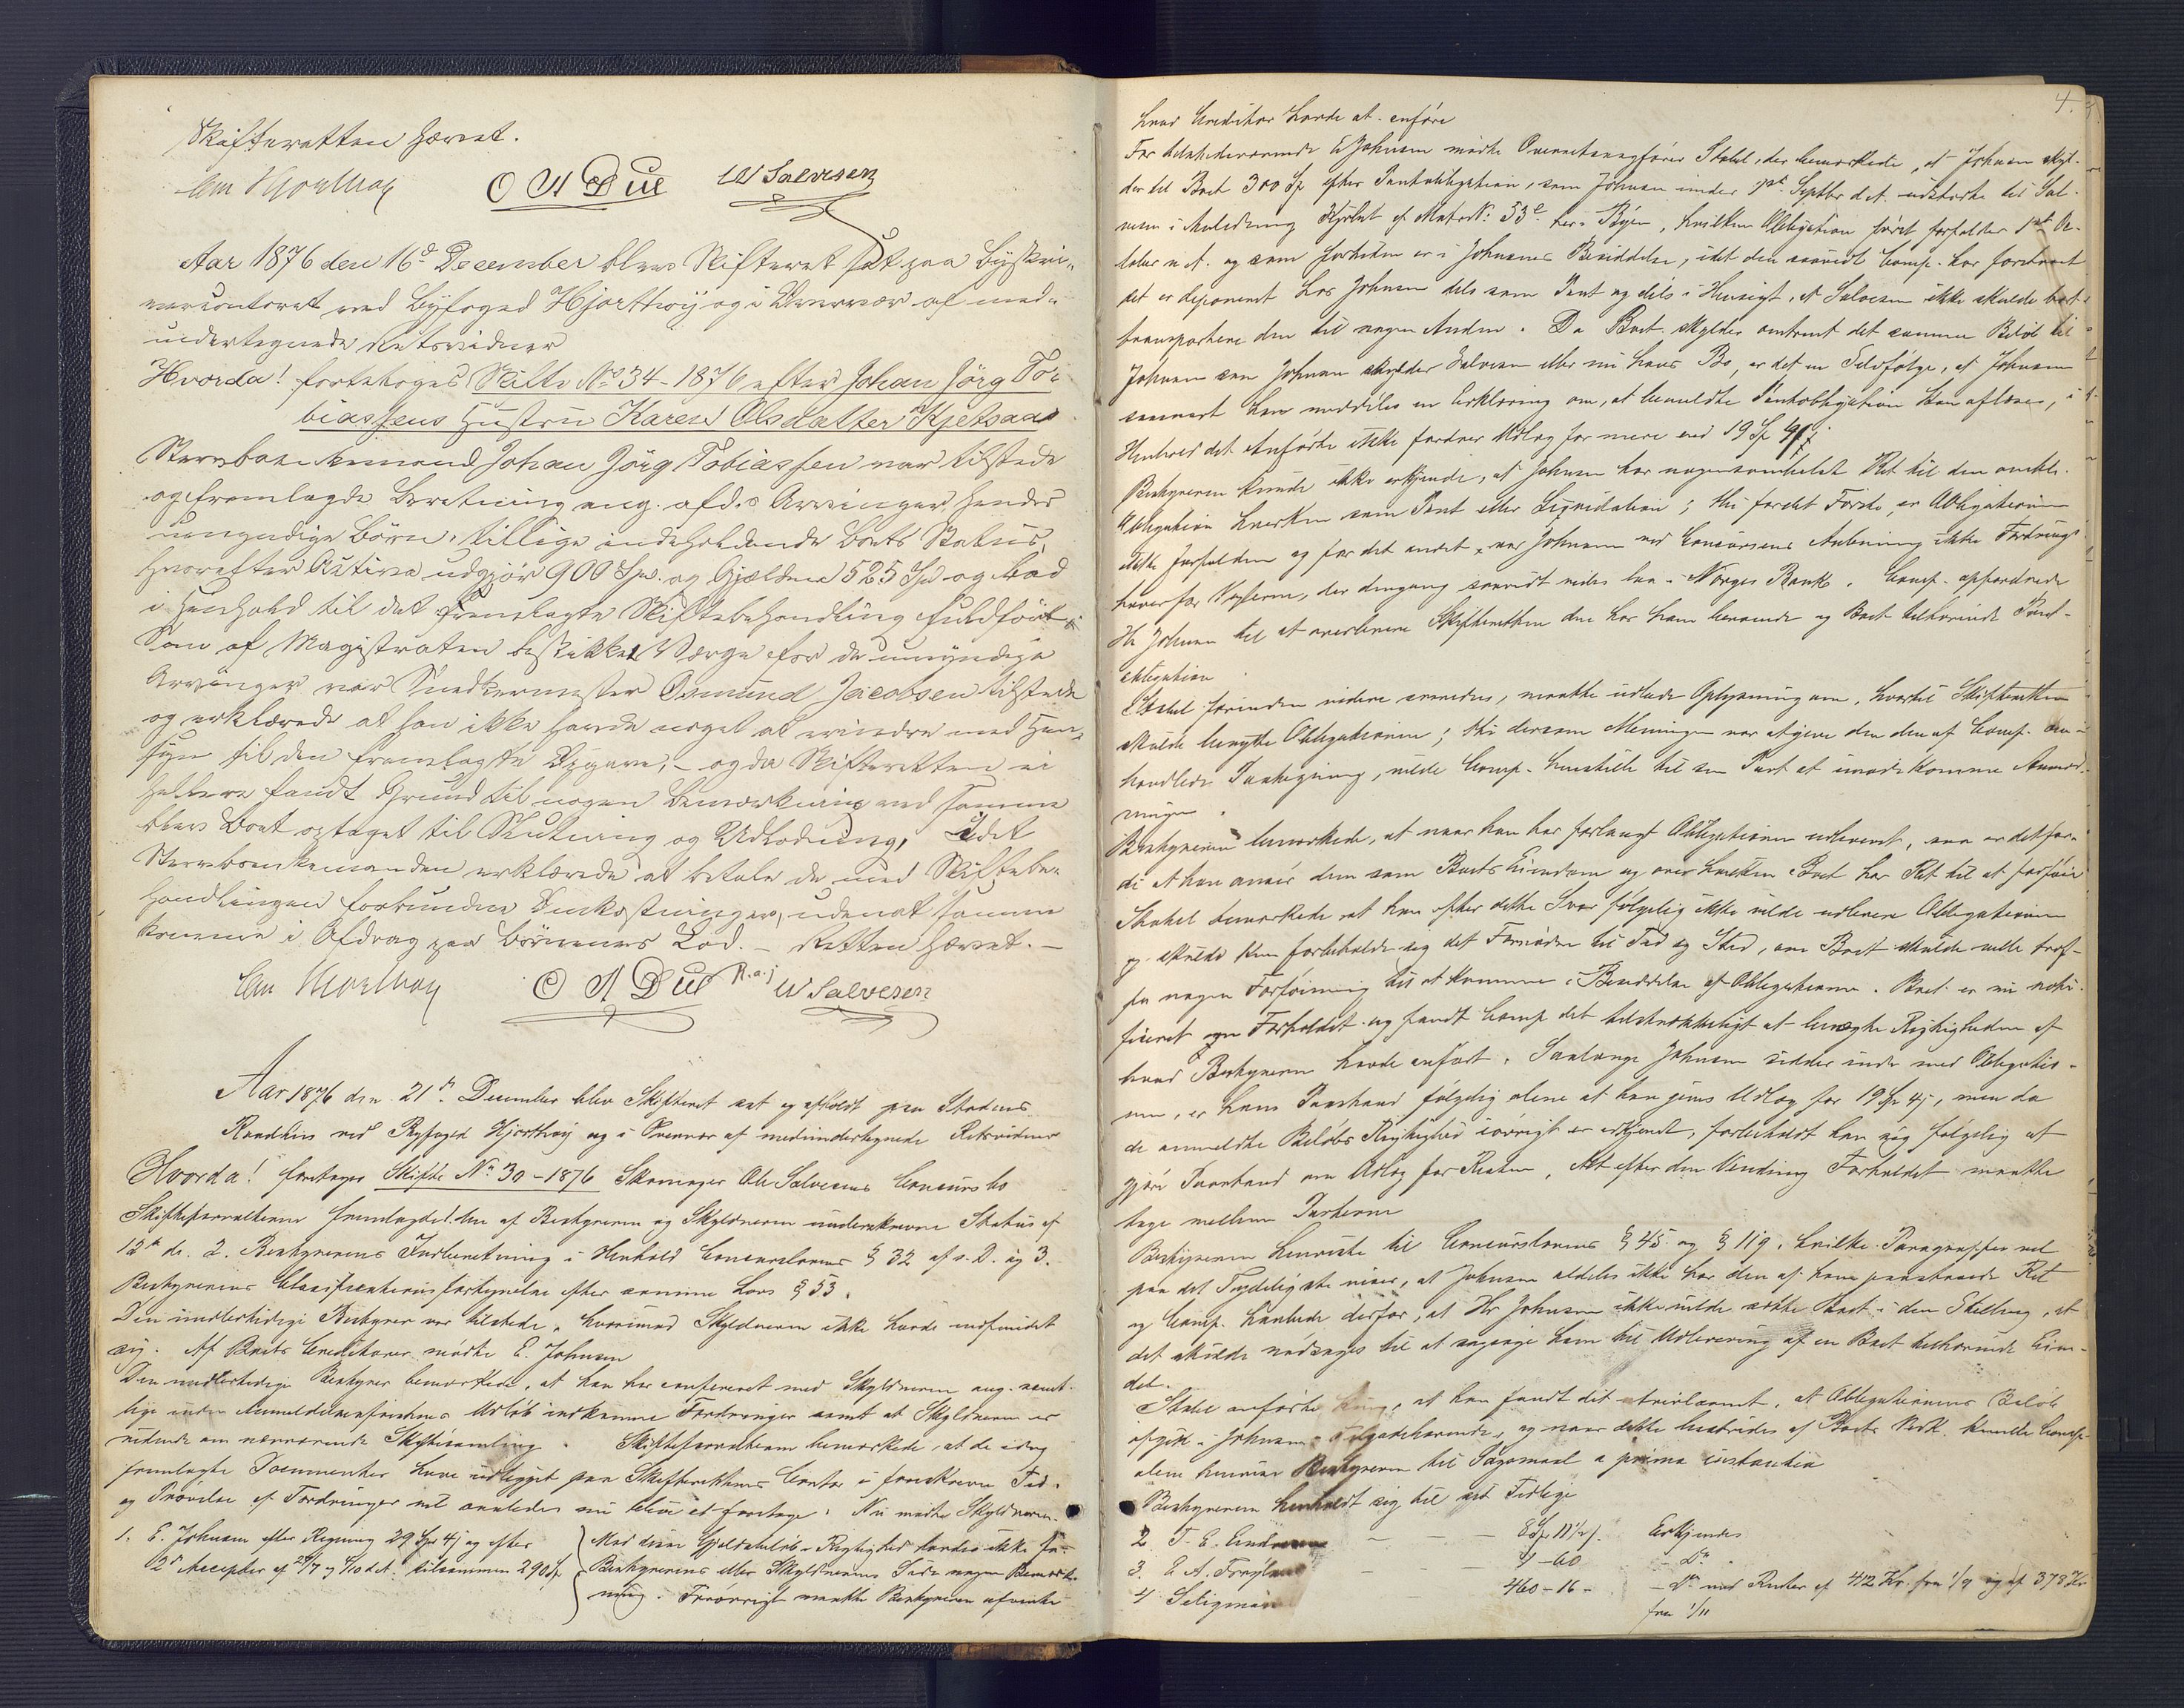 Skifteretten hævet.
O A Due W Salvesen
Aar 1876 den 16de December blev Skifteret sat paa Byskri-
vercontoret ved Byfoged Hjorthøy og i Overvær af med-
undertegnede Retsvidner
Hvorda! foretoges Skifte No 34-1876 efter Johan Jörg To-
biassens Hustru Karen Olsdatter Kjetsaas
Stervboenkemand Johan Jörg Tobiassen var tilstede
og fremlagde Beretning ang. afd.s Arvinger, hendes
umyndige Börn, tillige indeholdende Boets Status,
hvorefter Activa udgjör 900 Spd. og Gjælden 525 Spd og bad
i Henhold til det fremlagte Skiftebehandling fuldfört.
Som af Magistraten beskikket Værge for de umyndige
Arvinger var Snedkermester Osmund Jacobsen tilstede
og erklærede at han ikke havde noget at erindre med Hen-
syn til den fremlagte Opgave, – og da Skifteretten ei
hellere fandt Grund til nogen Bemærkning ved samme
blev Boet optaget til Slutning og Udlodning, idet
Stervboenkemanden erklærede at betale de med Skiftebe-
handlingen forbundne Omkostninger, uden at samme
komme i Afdrag paa Börnenes Lod. – Retten hævet. –
O A Due W Salvesen
Aar 1876 den 21de December blev Skifteret sat og afholdt paa Stadens
Raadhus ved Byfoged Hjorthøy og i Overvær af medundertegnede Retsvidner
Hvorda! foretoges Skifte No 30-1876 Skomager Ole Salvesens Concursbo
Skifteforvalteren fremlagde 1. den af Bestyreren og Skyldneren underskrevne Status af
12te ds. 2. Bestyrerens Indberetning i Henhold Concurslovens § 32 af s. D. og 3.
Bestyrerens Classificationsfortegnelse efter samme Lovs § 53.
Den midlertidige Bestyrer var tilstede, hvorimod Skyldneren ikke havde indfundet
sig. Af Boets Creditorer mødte E. Johnsen
Den midlertidige Bestyrer bemærkede, at han har confereret med Skyldneren ang. samt-
lige inden Anmeldelsesfristens Udløb indkomne Fordringer samt at Skyldneren er
vidende om nærværende Skiftesamling. Skifteforvalteren bemærkede, at de idag
fremlagte Documenter have udligget paa Skifterettens Contor i foreskreven Tid.
og Prøvelse af Fordringer vil saaledes nu blive at foretage. Nu mødte Skyldneren.
1. E. Johnsen efter Regning 29 Spd 4ß og efter
2de Accepter af tilsammen 290 Sp
Mod disse Gjældsbeløbs Rigtighed havdes ikke fra
Bestyrerens eller Skyldnerens Side nogen Bemærk-
ning. Forøvrigt maatte Bestyreren afvente
4.
hvad Creditor havde at anføre
For tilstedeværende E Johnsen mødte Overretssagfører Stabel, der bemærkede, at Johnsen skyl-
der til Boet 300 Sp efter Pantobligation, som Johnsen under 1ste Septbr d. A. udstedte til Sal-
vesen i Anledning Kjøbet af Matr No: 53c her i Byen, hvilken Obligation først forfalder 1ste Oc-
tober n. A. og som forresten er i Johnsens Besiddelse, idet den saavidt Comp. har forstaaet
det er deponeret hos Johnsen dels som Pant og dels i Hensigt, at Salvesen ikke skulde bort-
transportere den til nogen Anden. Da Boet skylder omtrent det samme Beløb til
Johnsen som Johnsen skylder Salvesen eller nu hans Bo, er det en Selvfølge, at Johnsen
saasnart ham meddeles en Erklæring om, at bemeldte Pantobligation kan aflæses, i
Henhold det Anførte ikke fordrer Udlæg for mere end 19 Sp 4ß
Bestyreren kunde ikke erkjende, at Johnsen har nogensomhelst Ret til den omhlte.
Obligation hverken som Pant eller Liqvidation; thi for det Første, er Obligationen
ikke forfalden og for det andet, var Johnsen ved Concursens Aabning ikke Fordrings-
haver for Vexlerne, der dengang saavidt vides laa i Norges Bank. Comp. opfordrede
Hr Johnsen til at overlevere Skifteretten den hos ham beroende og Boet tilhørende Pant-
obligation.
Stabel forinden videre svaredes, maatte udbede Oplysning om, hvortil Skifteretten
skulde benytte Obligationen; thi dersom Meningen var at give den den af Comp. om-
handlede Paategning, vilde Comp. henstille til sin Part at imødekomme Anmod-
ningen.
Bestyreren bemærkede, at naar han har forlangt Obligationen udleveret, saa er det for-
di at han anser den som Boets Eiendom og over hvilken Boet har Ret til at forføie
Stabel bemærkede at han efter dette Svar følgelig ikke vilde udlevere Obligationen
og skulde kun forbeholde sig det Fornødne til Tid og Sted, om Boet skulde ville træf-
fe nogen Forføining til at komme i Besiddelse af Obligationen. Boet er nu noti-
ficeret om Forholdet og fandt Comp det tilstrækkeligt at benægte Rigtigheden af
hvad Bestyreren havde anført. Saalænge Johnsen sidder inde med Obligatio-
nen, er hans Paastand følgelig alene at han gives Udlæg for 19 Sp 4ß, men da
de anmeldte Beløbs Rigtighed iøvrigt er erkjendt, forbeholdt han sig følgelig at
gjøre Paastand om Udlæg for Resten, Alt efter den Vending Forholdet maatte
tage mellem Parterne
Bestyreren henviste til Concurslovens § 45 og § 119, hvilke Paragrapher vel
paa det Tydeligste viser, at Johnsen aldeles ikke har den af ham paastaaede Ret
og Comp. haabede derfor, at Hr Johnsen ikke vilde sætte Boet i den Stilling, at
det skulde nødsages til at sagsøge ham til Udlevering af en Boet tilhørende Eien-
del.
Stabel anførte, at han fandt det utvivlsomt, at Obligationens Beløb
opgik i Johnsens Tilgodehavende, og naar dette bestrides af Boets Vedk. kunde Comp.
alene henvise Bestyreren til Søgsmaal a prima instantia
Bestyreren henholdt sig til sit Tidlige
2. T. E. Endresen – – – 8 Sp. 11½ß. Erkjendes
3. E A. – – 4-60 – Do
4 Seligman – 460-16- – Do med Renter af 412 Kr. fra 1/9 og af 378 Kr
fra 1/11